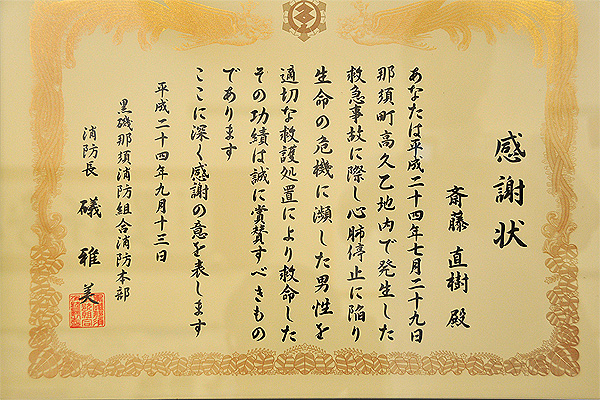 感謝状
斎藤 直樹 殿
あなたは平成二十四年七月二十九日
那須町高久乙地内で発生した
救急事故に際し心肺停止に陥り
生命の危機に瀕した男性を
適切な救護処置により救命した
その功績は誠に賞賛すべきもの
であります
ここに深く感謝の意を表します
平成二十四年九月十三日
黒磯那須消防組合消防本部
消防長 礒 雅美